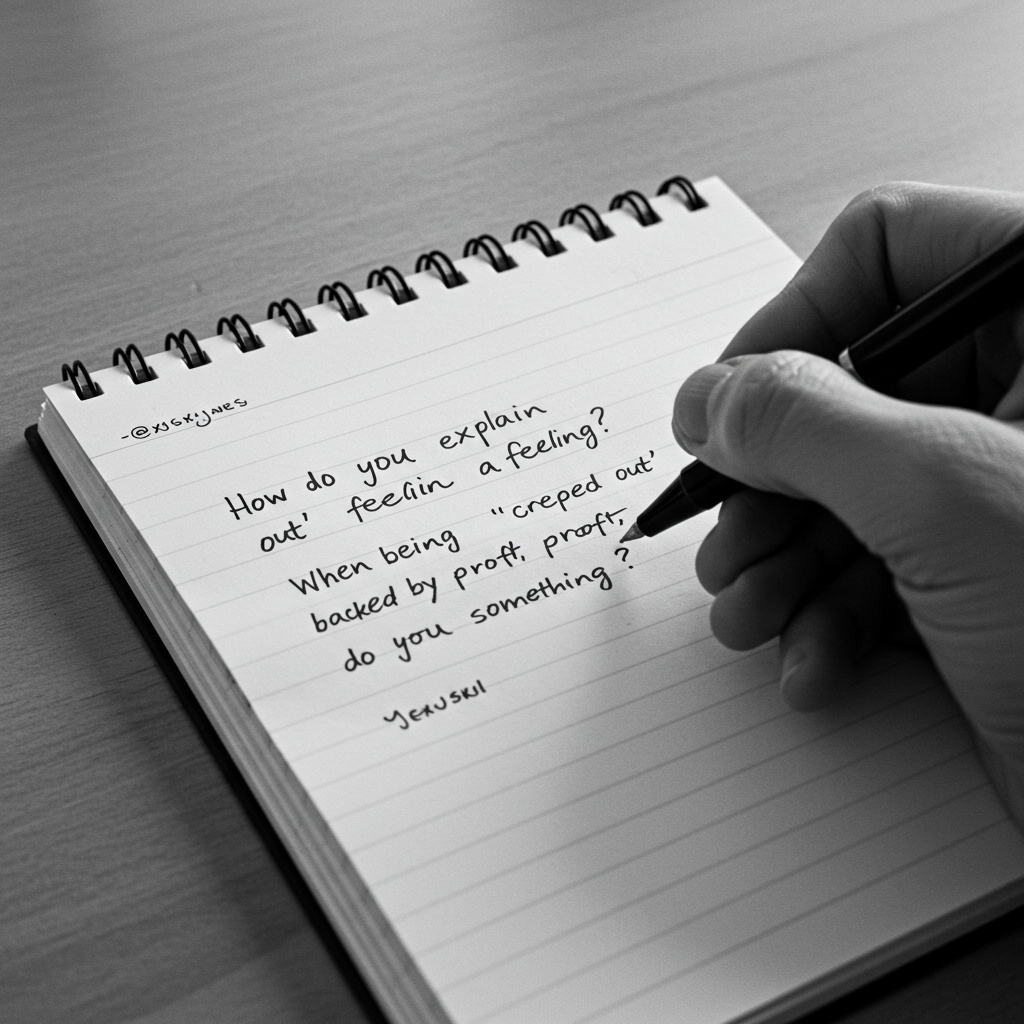 How do you explain
out' feelin a feeling?
When being "creped out'
backed by proft, proft,
do you something?
yexuskil